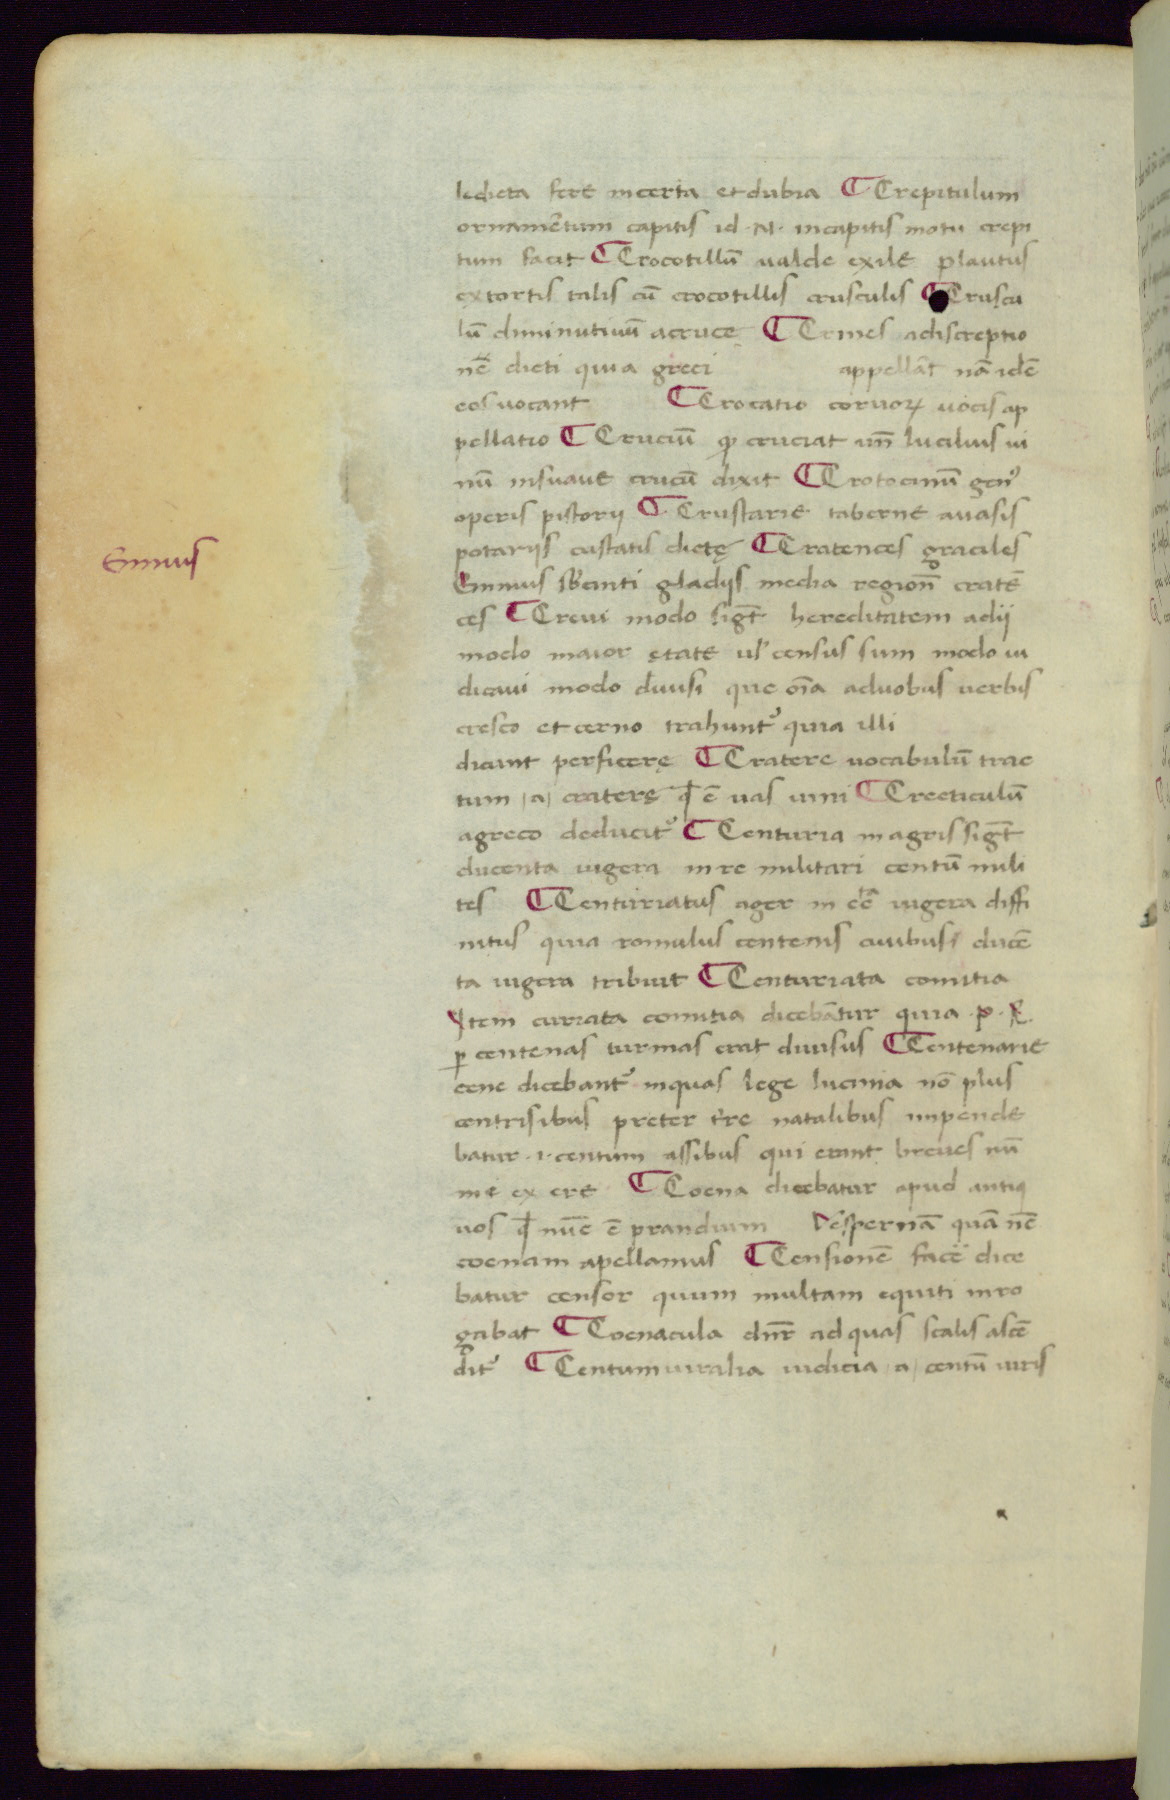 ledicta ferè incerta et dubia ⸿ Crepitulum
ornamētum capitis id ·N· incapitis motu crepi
tum facit ⸿ Crocotillū valde exilè plautus
extortis talis cū crocotillis crusculis ⸿ Cruscu
lū diminutiuū acruce ⸿ Crines adiscreptio
nē dicti quia greci appellāt nā idē
eos vocant ⸿ Crocatio coruoꝝ uocis ap
pellatio ⸿ Cruciū ꝙ cruciat un̄ lucilius ui
nū insuauè crucū dixit ⸿ Crotocinū gen᾿
operis pistorij ⸿ Crustariè tabernè auasis
potarijs custatis dictę ⸿ Cratences graciles
Ennius
Ennius sicanti gladijs media region̄ cratē
ces ⸿ Creui modo sigt̄ hereditatem adij
modo maior ętatè ul᾿ census sum modo iu
dicaui modo diuisi que oīa aduobus uerbis
cresco et cerno trahunt᾿ quia illi
dicunt perficerę ⸿ Cratere uocabulū trac
tum /a/ craterę qd̄ ē uas uini ⸿ Creeticulū
agreco deducit᾿ ⸿ Centuria in agris sigt̄
ducenta iugera in re militari centū mili
tes ⸿ Centuriatus ager in ccͣ iugera diffi
nitus quia romulus centenis ciuibus ducē
ta iugera tribuit ⸿ Centuriata comitia
Item curiata comitia dicebātur quia ·p·R·
ꝑ centenas turmas erat diuisus ⸿ Centenariè
cene dicebant᾿ inquas lege lucinia nō plus
centrisibus preter t᾿re natalibus impendē
batur ·i· centum assibus qui erant breues nū
mi ex erè ⸿ Coena dicebatur apud antiq
uos qd̄ nūc ē prandium Vespernā quā nē
coenam apellamus ⸿ Censionē facē dice
batur censor quum multam equiti inro
gabat ⸿ Coenacula dnr̄ ad quas scalis ascē
dit᾿ ⸿ Centumuiralia iudicia /a/ centū uiris